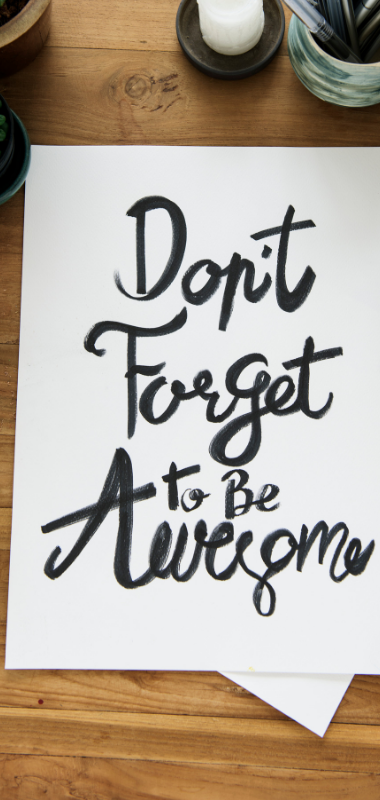 Don't
Forget
to Be
Awesome